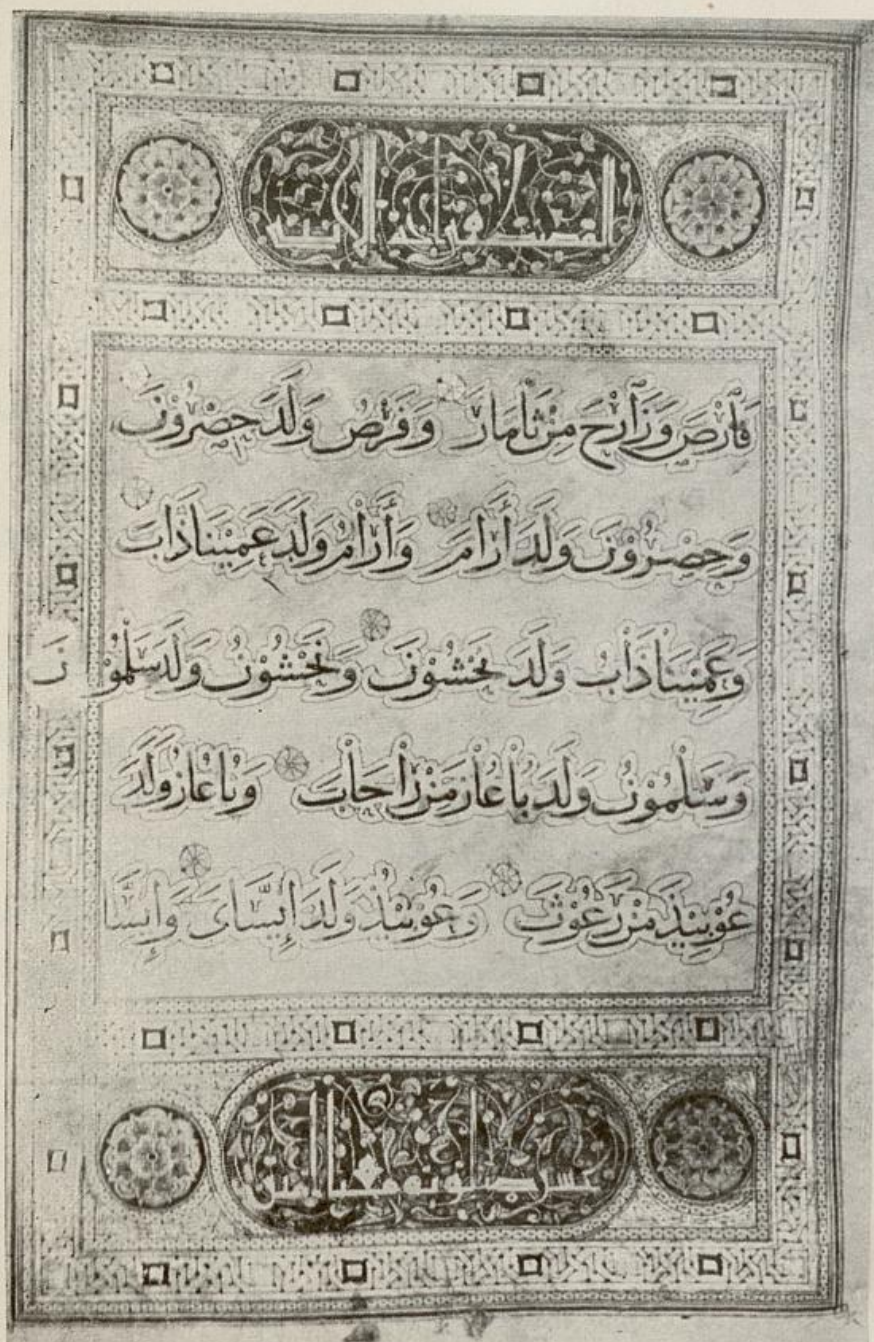 فَارَصَ وَزَارَحَ مِنْ ثَامَارَ وَفَرَصُ وَلَدَ حِصْرُوْنَ
وَحِصْرُوْنَ وَلَدَ أَرَامَ وَأَرَامُ وَلَدَ عَمِيْنَاذَابَ
وَعَمِيْنَاذَابُ وَلَدَ نَحْشُوْنَ وَنَحْشُوْنُ وَلَدَ سَلْمُوْنَ
وَسَلْمُوْنُ وَلَدَ بَاعَازَ مِنْ رَاحَابَ وَبَاعَازُ وَلَدَ
عُوْبِيْذَ مِنْ رَعُوْثَ وَعُوْبِيْذُ وَلَدَ إِيْسَّايَ وَإِيْسَّا